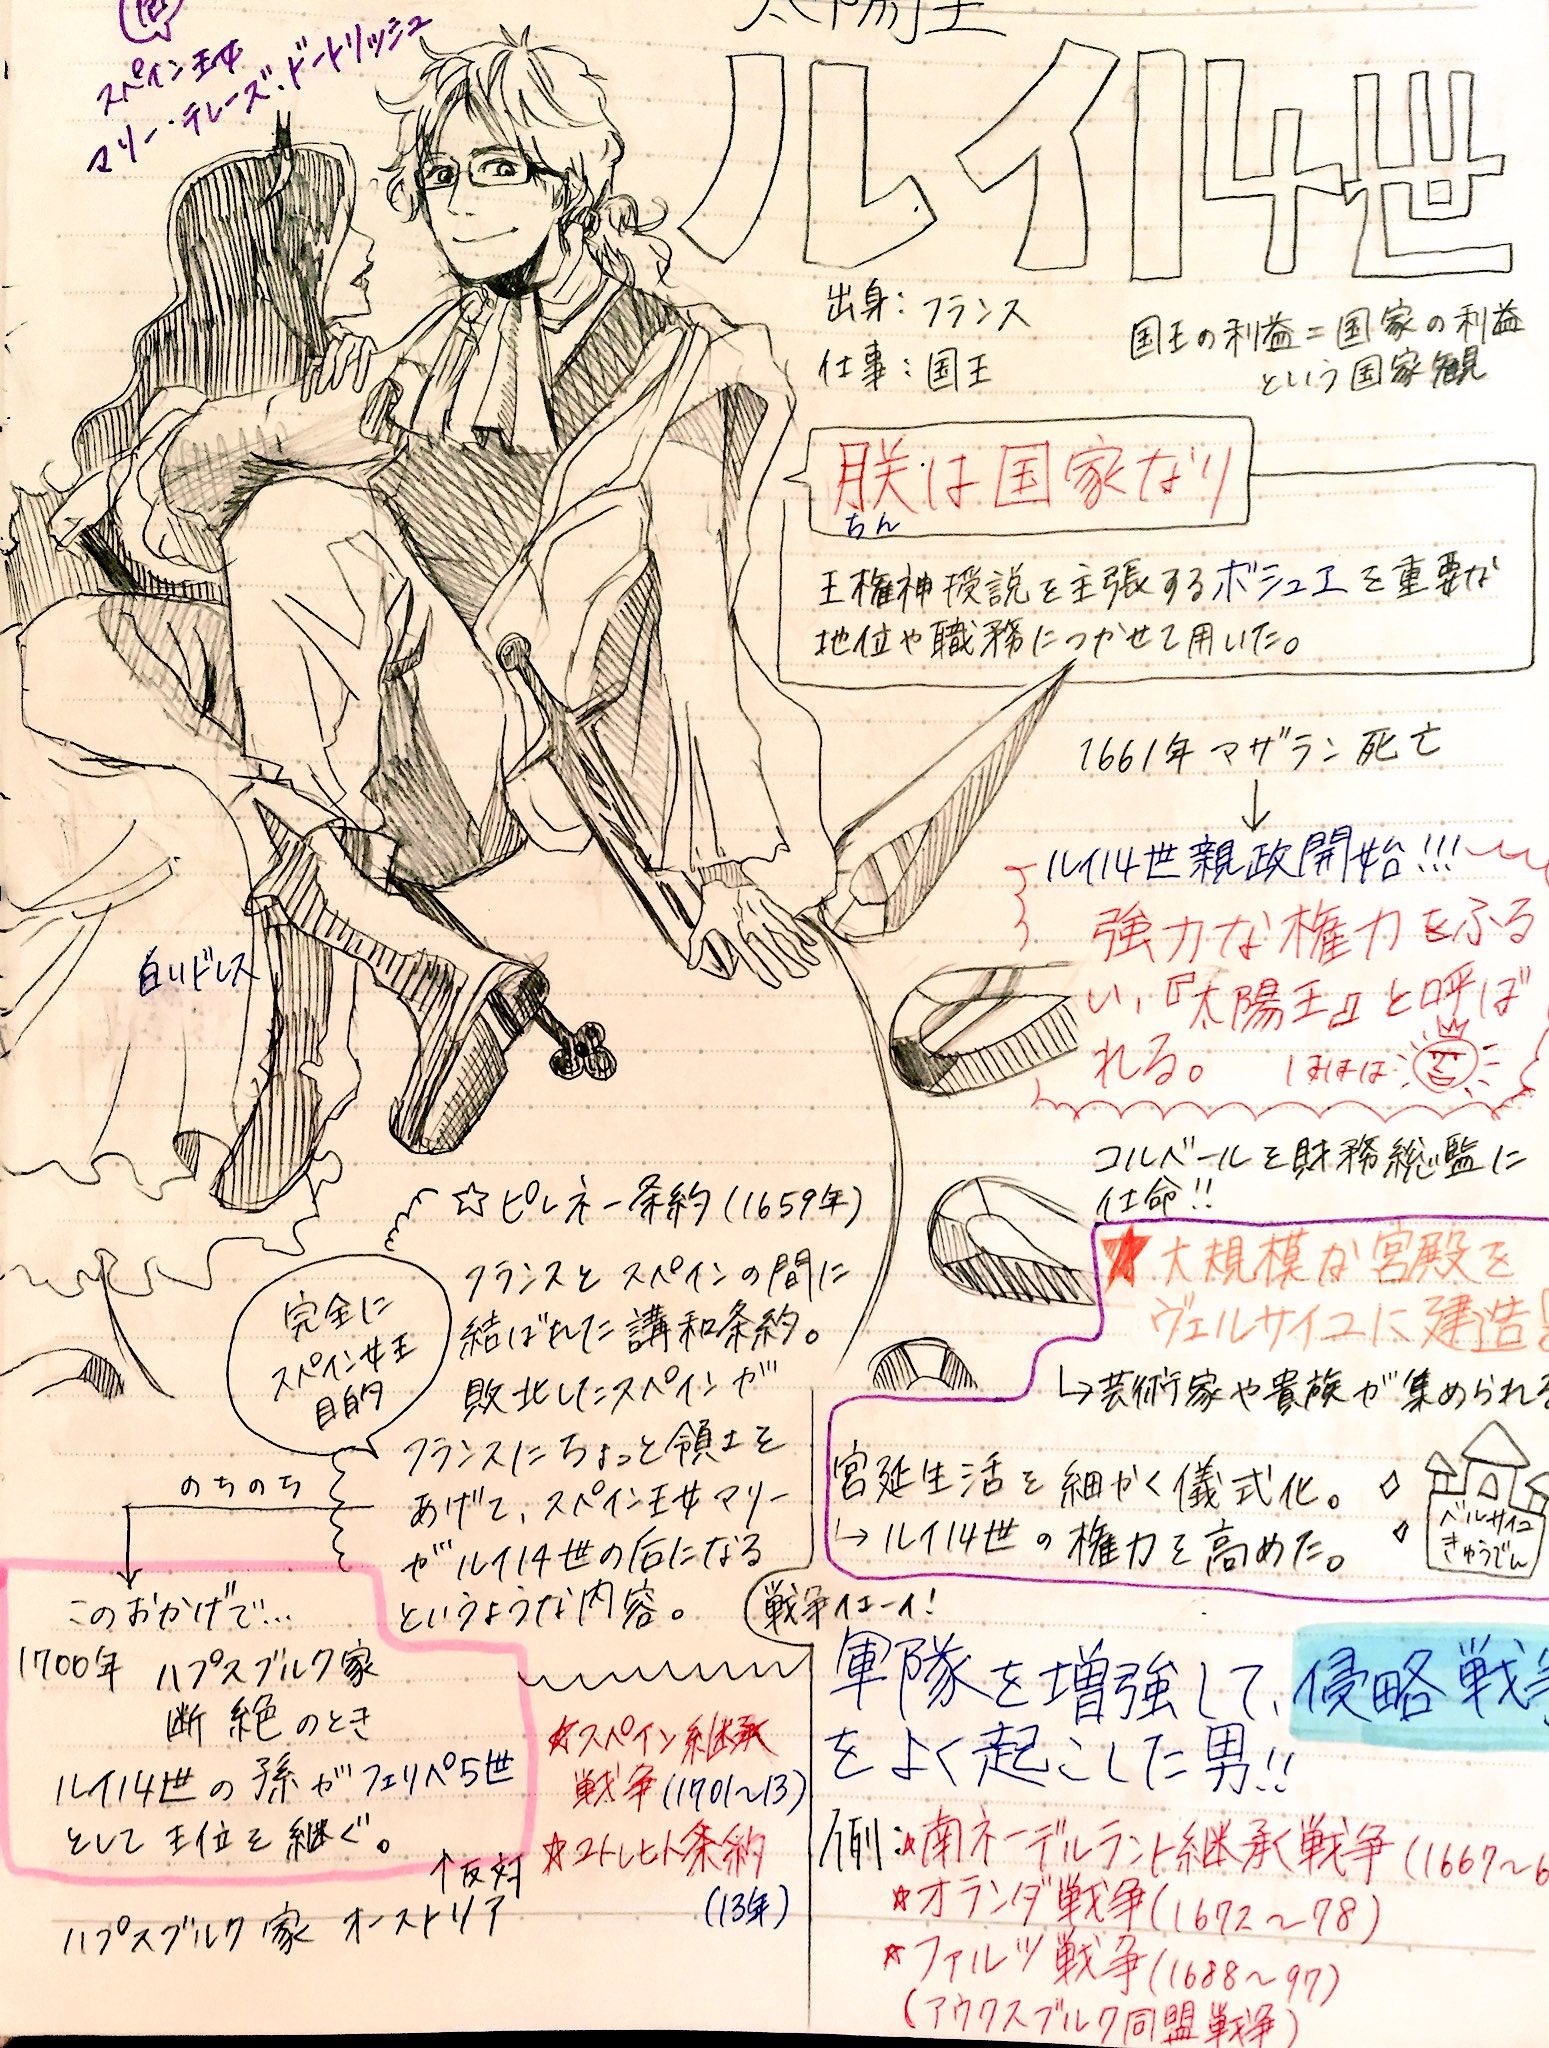 スペイン王女
マリー・テレーズ・ドートリッシュ
太陽王
ルイ14世
出身：フランス
仕事：国王
国王の利益＝国家の利益
という国家観
朕は国家なり
ちん
王権神授説を主張するボシュエを重要な
地位や職務につかせて用いた。
1661年マザラン死亡
↓
ルイ14世親政開始!!!
強力な権力をふる
い、『太陽王』と呼ば
れる。 ほほほ
コルベールを財務総監に
任命!!
★大規模な宮殿を
ヴェルサイユに建造!
↳芸術家や貴族が集められる
宮廷生活を細かく儀式化。
↳ルイ14世の権力を高めた。
ベルサイユ
きゅうでん
白いドレス
☆ピレネー条約(1659年)
フランスとスペインの間に
結ばれた講和条約。
敗北したスペインが
フランスにちょっと領土を
あげて、スペイン王女マリー
がルイ14世の后になる
というような内容。
完全に
スペイン女王
目的
のちのち
このおかげで…
1700年 ハプスブルク家
断絶のとき
ルイ14世の孫がフェリペ5世
として王位を継ぐ。
↑反対
ハプスブルク家 オーストリア
☆スペイン継承
戦争(1701〜13)
☆ユトレヒト条約
(13年)
戦争イエーイ!
軍隊を増強して、侵略戦争
をよく起こした男!!
例：☆南ネーデルラント継承戦争(1667〜6
☆オランダ戦争(1672〜78)
☆ファルツ戦争(1688〜97)
(アウクスブルク同盟戦争)